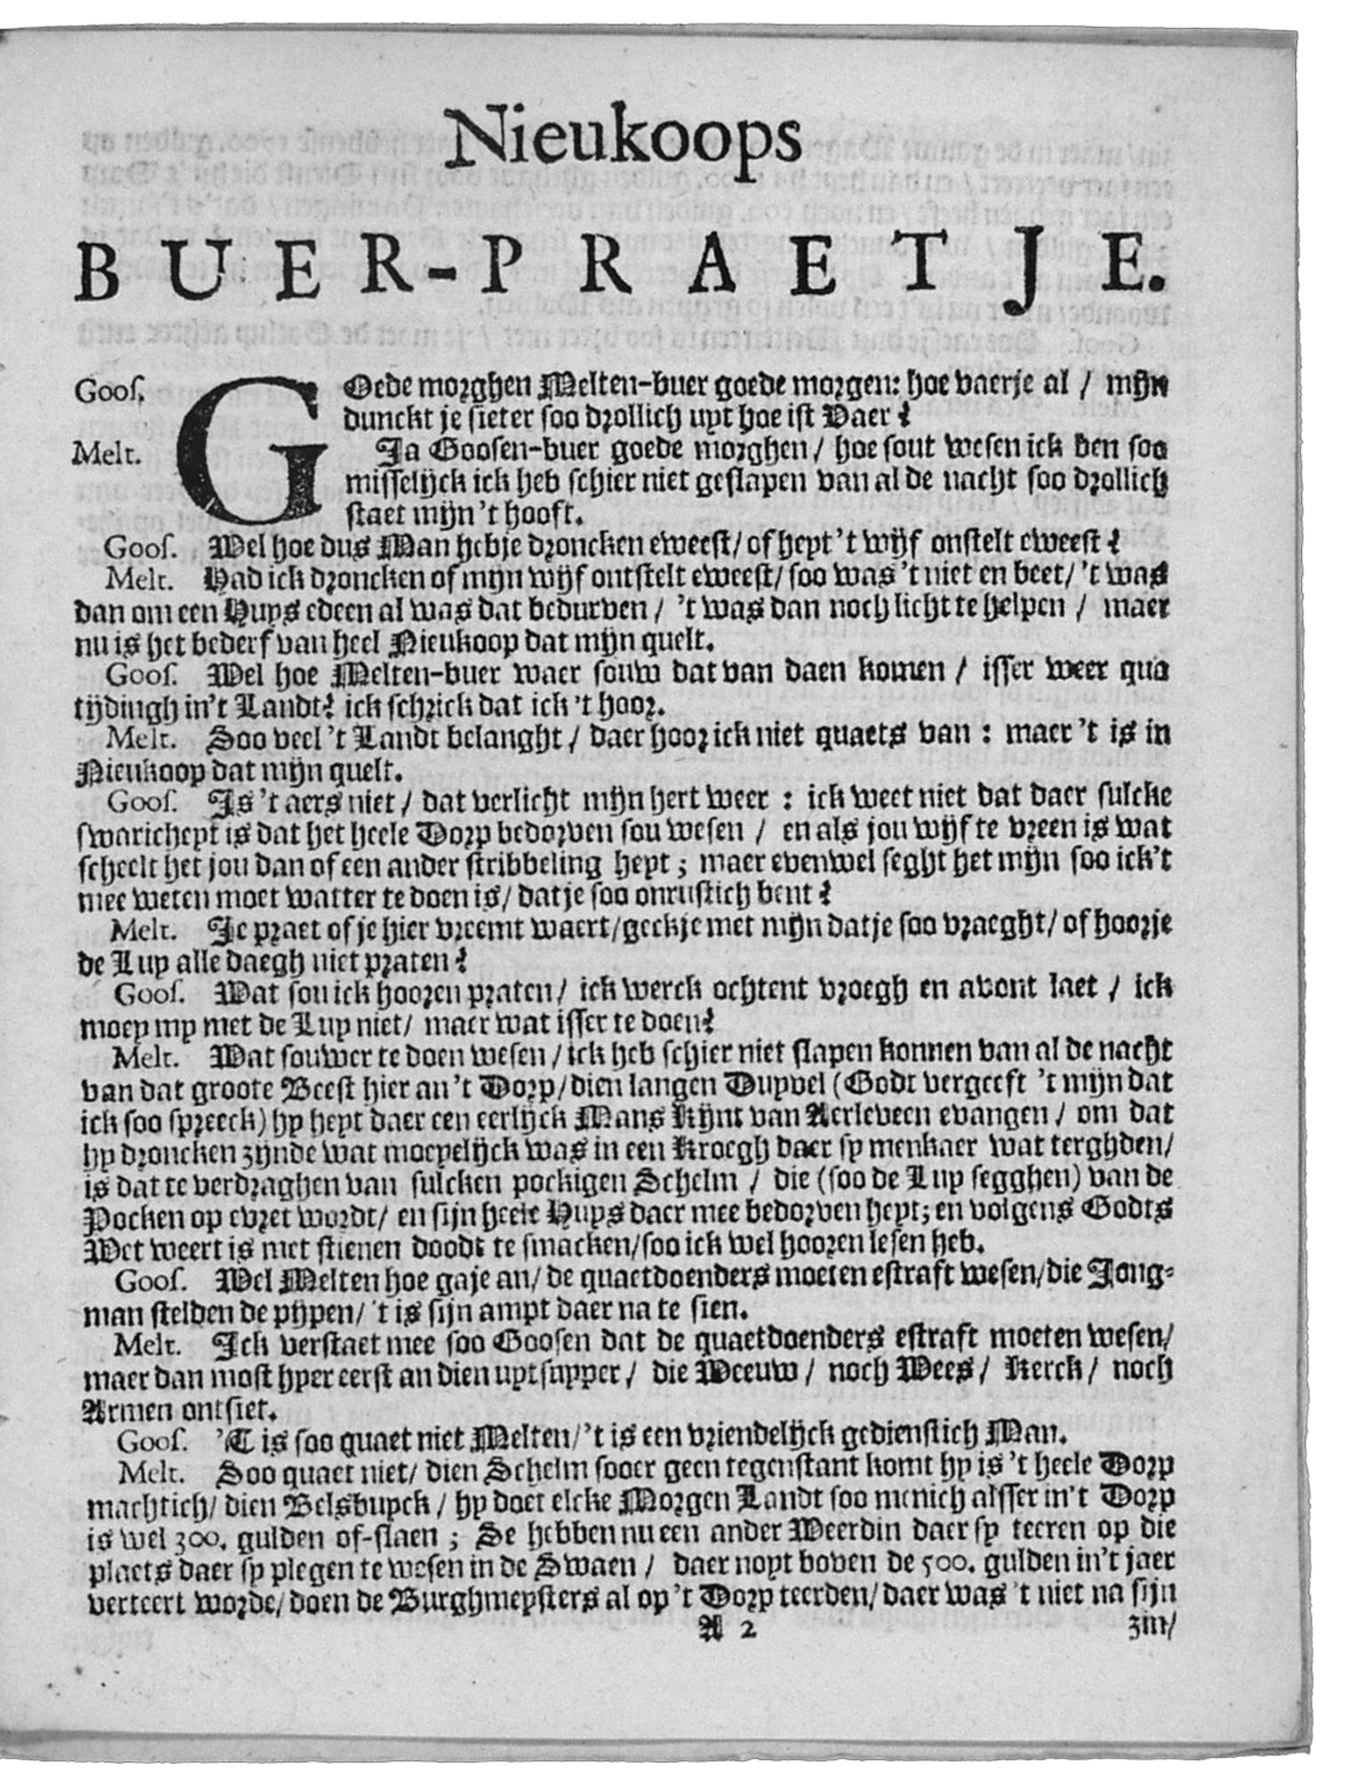 Nieukoops
BUER-PRAETJE.
Goos. GOede morghen Melten-buer goede morgen: hoe vaerje al / mijn
dunckt je sieter soo drollich uyt hoe ist Vaer?
Melt. Ja Goosen-buer goede morghen / hoe sout wesen ick ben soo
misselijck ick heb schier niet geslapen van al de nacht soo drollich
staet mijn 't hooft.
Goos. Wel hoe dus Man hebje droncken eweest / of heyt 't wijf onstelt eweest?
Melt. Had ick droncken of mijn wijf ontstelt eweest / soo was 't niet en beet / 't was
dan om een Huys edeen al was dat bedurven / 't was dan noch licht te helpen / maer
nu is het bederf van heel Nieukoop dat mijn quelt.
Goos. Wel hoe Melten-buer waer souw dat van daen komen / isser weer qua
tijdingh in't Landt? ick schrick dat ick 't hoor.
Melt. Soo veel 't Landt belanght / daer hoor ick niet quaets van : maer 't is in
Nieukoop dat mijn quelt.
Goos. Is 't aers niet / dat verlicht mijn hert weer : ick weet niet dat daer sulcke
swaricheyt is dat het heele Dorp bedorven sou wesen / en als jou wijf te vreen is wat
scheelt het jou dan of een ander stribbeling heyt ; maer evenwel seght het mijn soo ick't
mee weten moet watter te doen is / datje soo onrustich bent?
Melt. Je praet of je hier vreemt waert / geckje met mijn datje soo vraeght / of hoorje
de Luy alle daegh niet praten?
Goos. Wat sou ick hooren praten / ick werck ochtent vroegh en avont laet / ick
moey my met de Luy niet / maer wat isser te doen?
Melt. Wat souwer te doen wesen / ick heb schier niet slapen konnen van al de nacht
van dat groote Beest hier an 't Dorp / dien langen Duyvel (Godt vergeeft 't mijn dat
ick soo spreeck) hy heyt daer een eerlijck Mans Kijnt van Aerleveen evangen / om dat
hy droncken zijnde wat moeyelijck was in een Kroegh daer sy menkaer wat terghden /
is dat te verdraghen van sulcken pockigen Schelm / die (soo de Luy segghen) van de
Pocken op evret wordt / en sijn heele Huys daer mee bedorven heyt; en volgens Godts
Wet weert is met stienen doodt te smacken / soo ick wel hooren lesen heb.
Goos. Wel Melten hoe gaje an / de quaetdoenders moeten estraft wesen / die Jong-
man stelden de pijpen / 't is sijn ampt daer na te sien.
Melt. Ick verstaet mee soo Goosen dat de quaetdoenders estraft moeten wesen /
maer dan most hyer eerst an dien uytsuyper / die Weeuw / noch Wees / Kerck / noch
Armen ontsiet.
Goos. 'T is soo quaet niet Melten / 't is een vriendelijck gedienstich Man.
Melt. Soo quaet niet / dien Schelm sooer geen tegenstant komt hy is 't heele Dorp
machtich / dien Belsbuyck / hy doet elcke Morgen Landt soo menich alsser in't Dorp
is wel 300. gulden of-slaen ; Se hebben nu een ander Weerdin daer sy teeren op die
plaets daer sy plegen te wesen in de Swaen / daer noyt boven de 500. gulden in't jaer
verteert worde / doen de Burghmeysters al op 't Dorp teerden / daer was 't niet na sijn
A 2 zin /